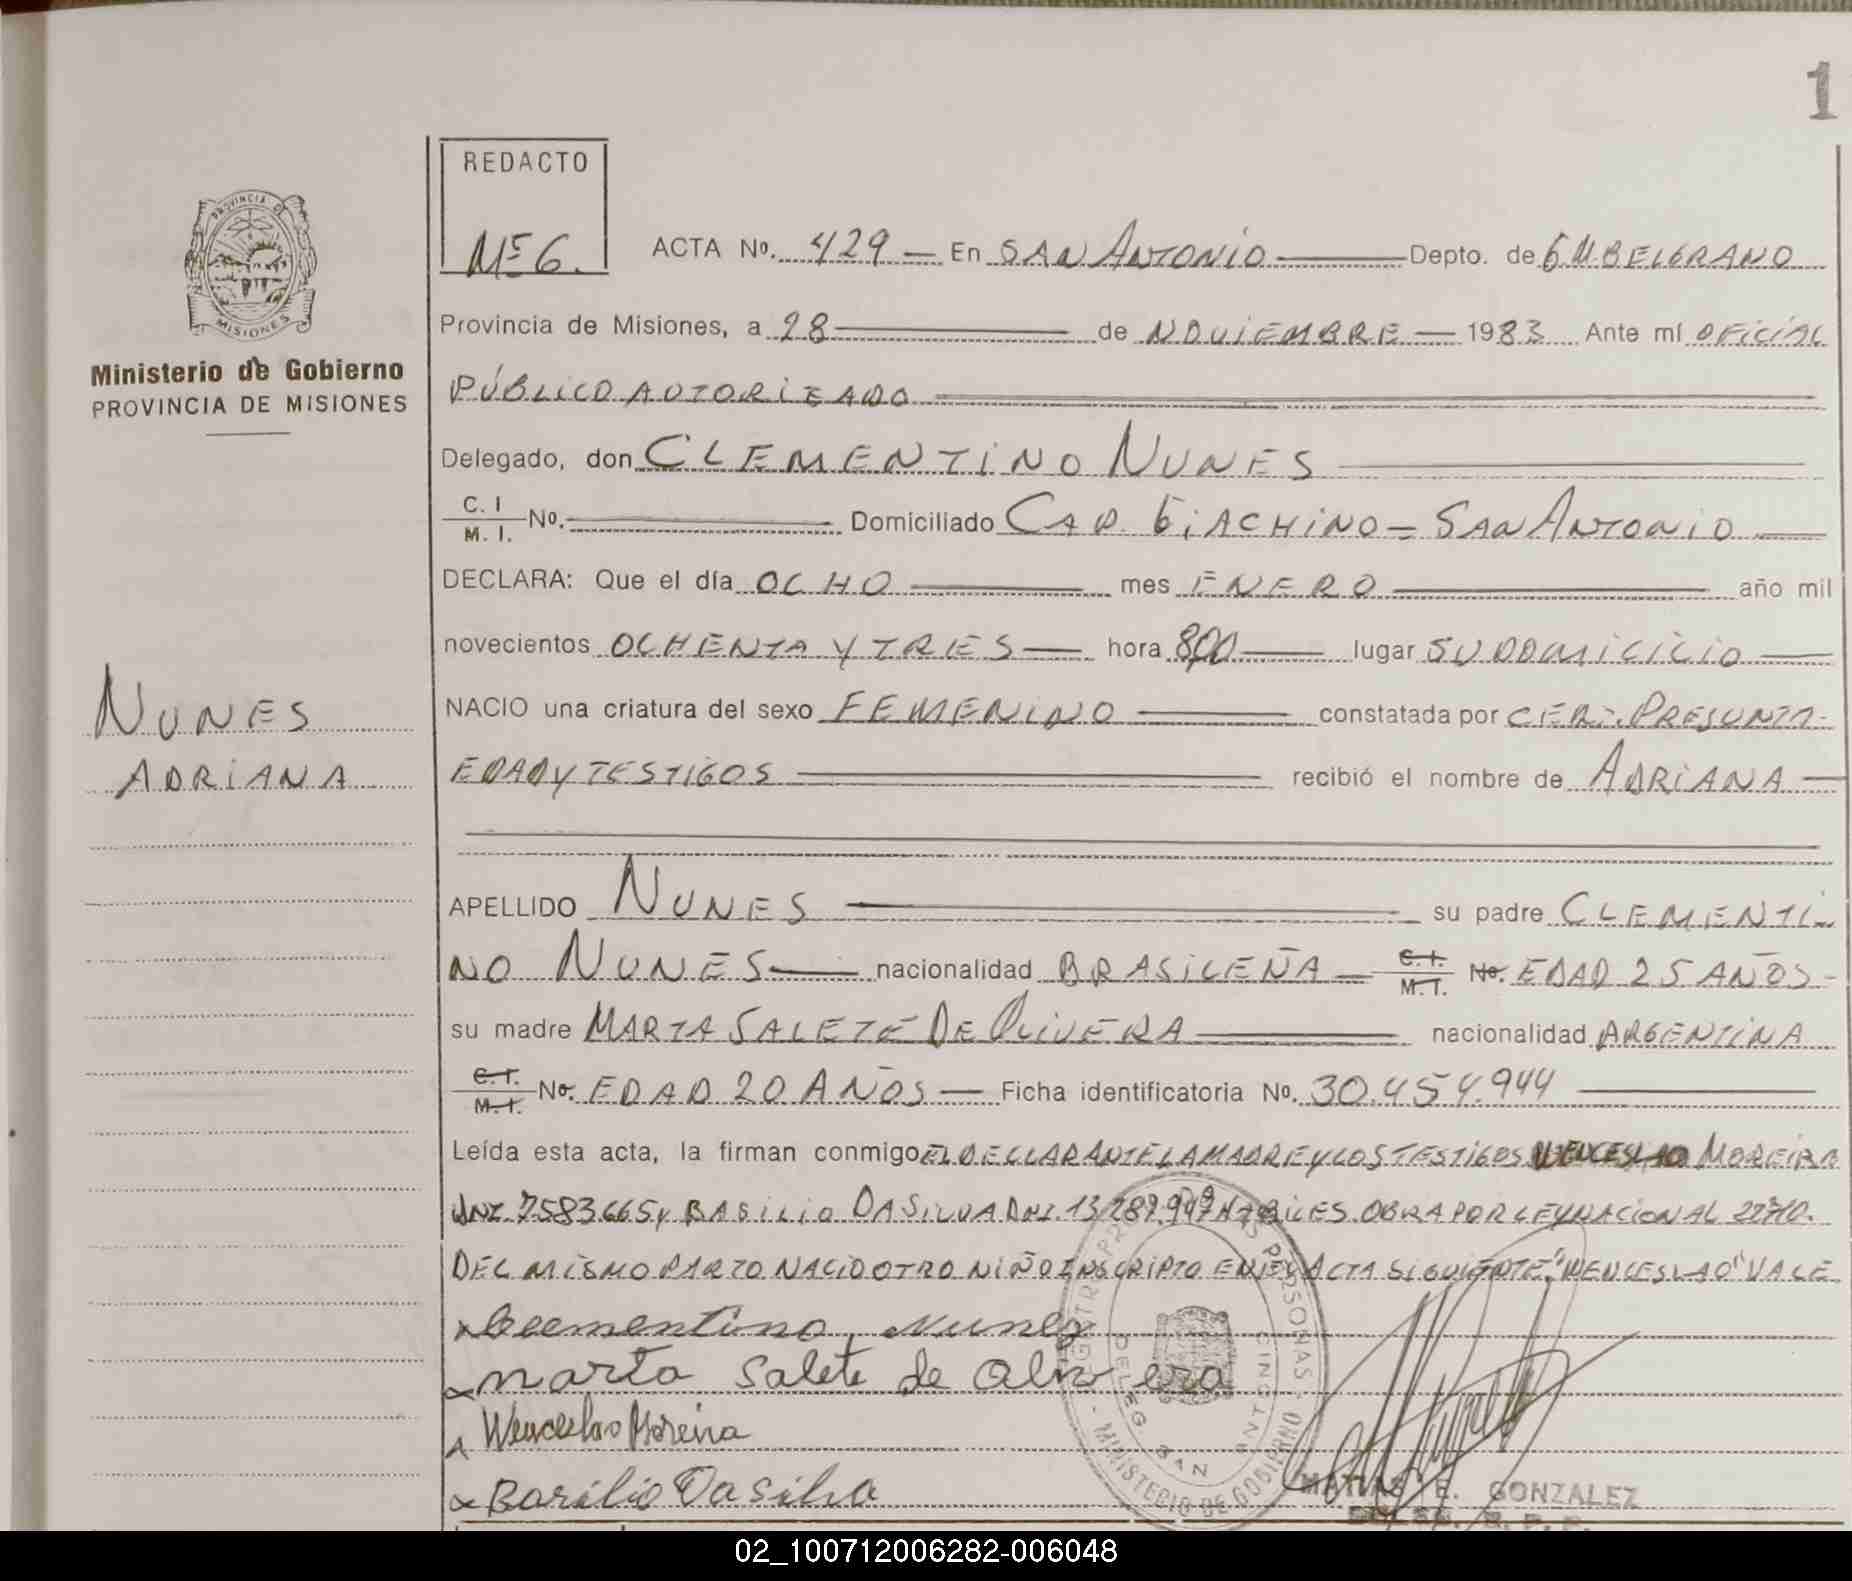 1
REDACTO
MEG.
PROVINCIA DE
MISIONES
Ministerio de Gobierno
PROVINCIA DE MISIONES
ACTA Nº. 429 — En SAN ANTONIO — Depto. de G M BELGRANO
Provincia de Misiones, a 28 — de NOVIEMBRE — 1983 Ante mí OFICIAL
PÚBLICO AUTORIZADO
Delegado, don CLEMENTINO NUNES
C. I
M. I. Nº. — Domiciliado CAP. GIACHINO = SAN ANTONIO
DECLARA: Que el día OCHO — mes ENERO — año mil
novecientos OCHENTA Y TRES — hora 8,00 — lugar SU DOMICILIO —
NUNES
ADRIANA
NACIO una criatura del sexo FEMENINO — constatada por CERT. PRESUNTA-
EDAD Y TESTIGOS — recibió el nombre de ADRIANA —
APELLIDO NUNES — su padre CLEMENTI-
NO NUNES — nacionalidad BRASILEÑA — C.I. M.I. No. EDAD 25 AÑOS -
su madre MARTA SALETE DE OLIVERA — nacionalidad ARGENTINA
C.I. M.I. No. EDAD 20 AÑOS — Ficha identificatoria No. 30.454.944 —
Leída esta acta, la firman conmigo EL DECLARANTE LA MADRE Y LOS TESTIGOS WENCESLAO MOREIRA
DNI 7583665 y BASILIO DA SILVA DNI. HABILES. OBRA POR LEY NACIONAL
DEL MISMO PARTO NACIO OTRO NIÑO INSCRIPTO EN EL ACTA SIGUIENTE. "WENCESLAO" VALE
Clementino Nunes
marta Salete de Olivera
Wenceslao Moreira
Basilio Da silva
PERSONAS - MINISTERIO DE GOBIERNO -
DELEG. SAN ANTONIO
MATIAS E. GONZALEZ
02_100712006282-006048